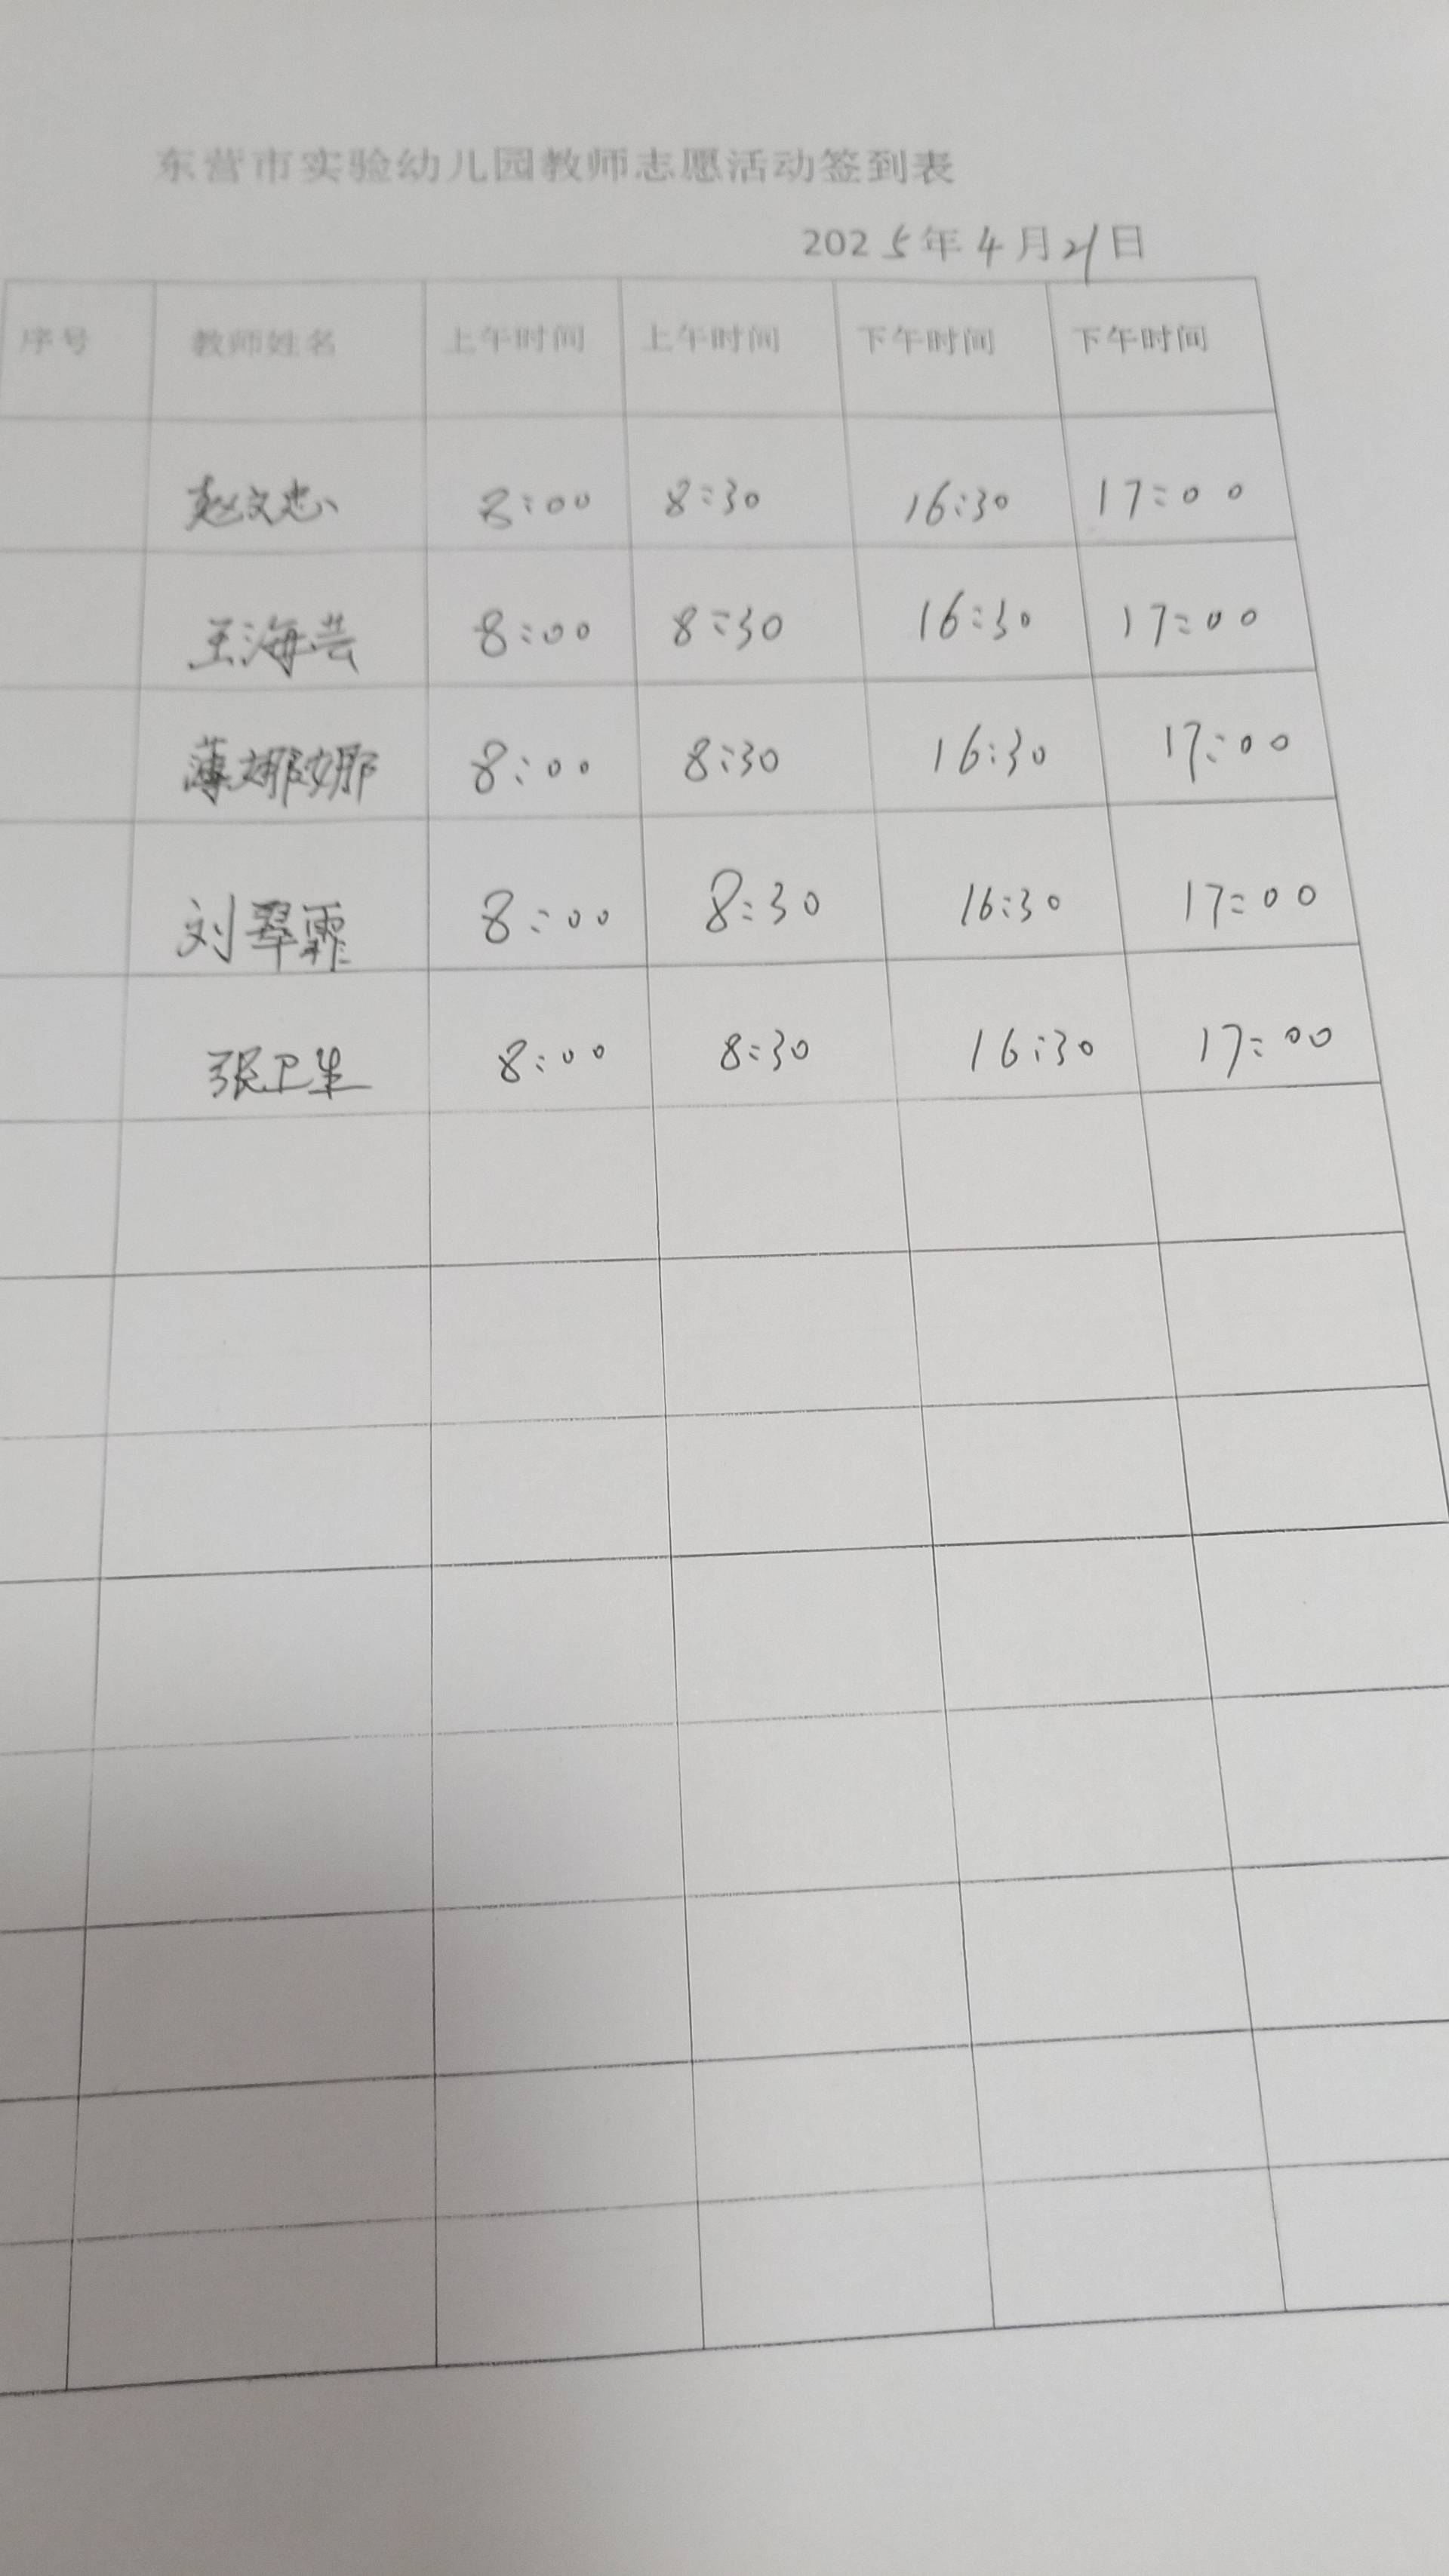 东营市实验幼儿园教师志愿活动签到表
2025年4月21日
序号 教师姓名 上午时间 上午时间 下午时间 下午时间
赵文忠 8:00 8:30 16:30 17:00
王海芸 8:00 8:30 16:30 17:00
薄娜娜 8:00 8:30 16:30 17:00
刘翠霏 8:00 8:30 16:30 17:00
张卫生 8:00 8:30 16:30 17:00